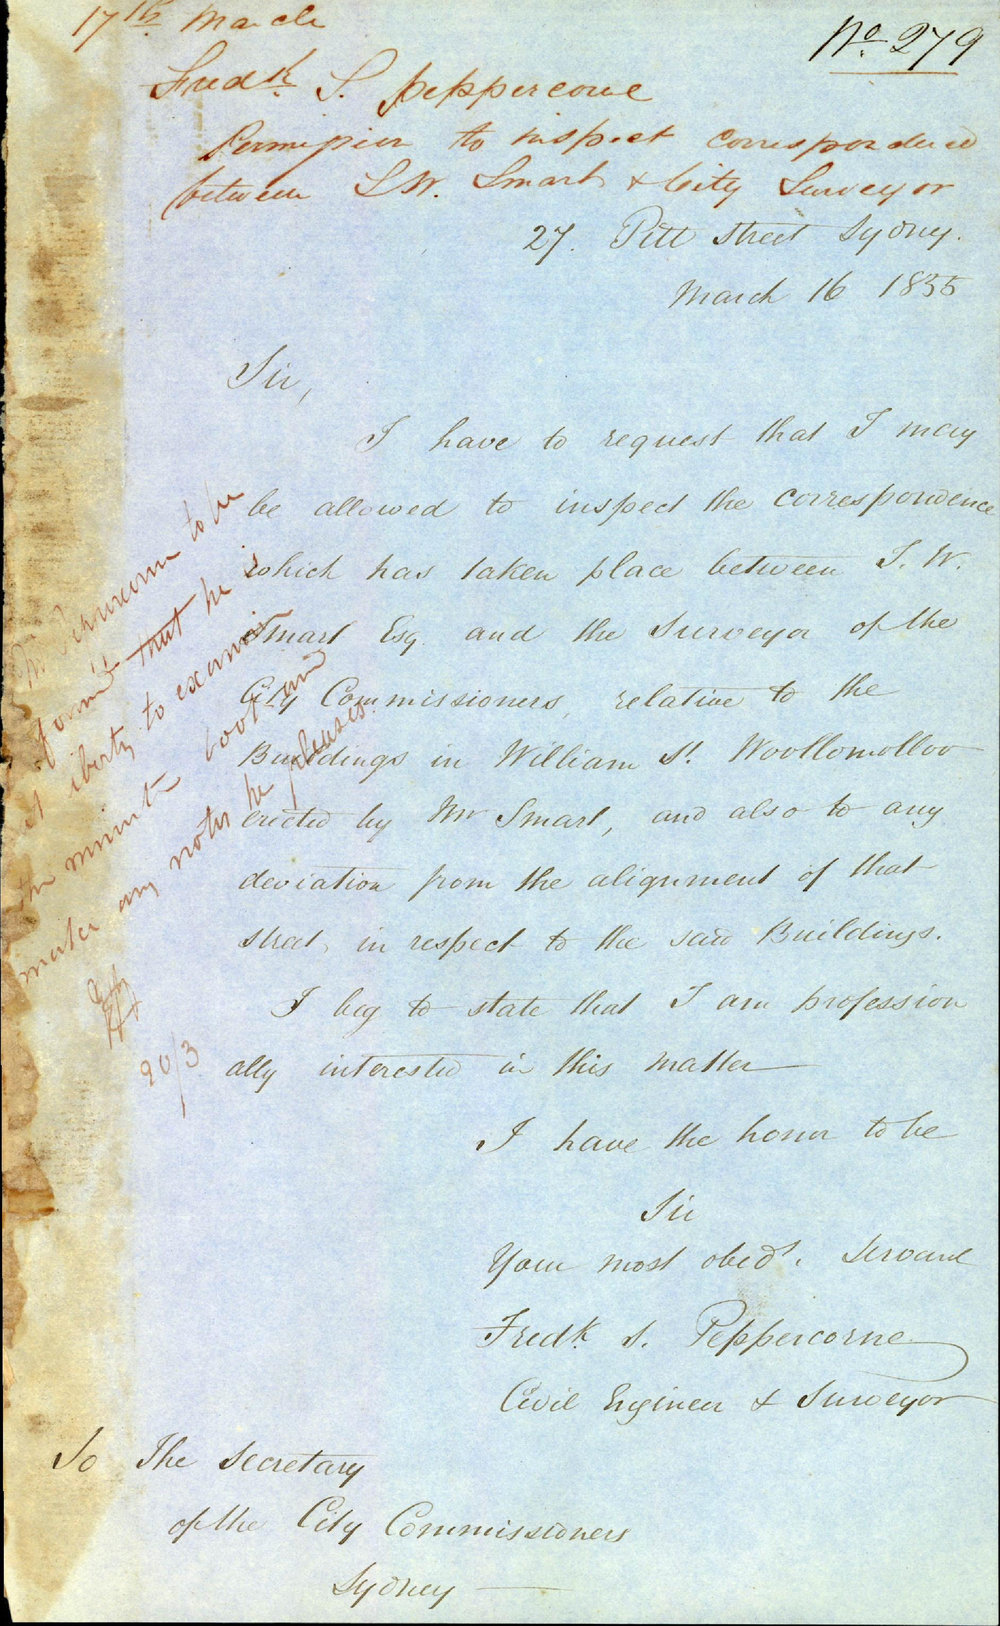 17th March
No. 279
Fredk. S. Peppercorne
Permission to inspect correspondence
between T. W. Smart & City Surveyor
27. Pitt Street Sydney.
March 16 1855
Sir,
I have to request that I may
be allowed to inspect the correspondence
which has taken place between T. W.
Smart Esq. and the Surveyor of the
City Commissioners, relative to the
Buildings in William St. Woollomolloo
erected by Mr Smart, and also to any
deviation from the alignment of that
street, in respect to the said Buildings.
I beg to state that I am profession
ally interested in this matter
I have the honor to be
Sir
Your most obedt. Servant
Fredk. S. Peppercorne
Civil Engineer & Surveyor
To The Secretary
of the City Commissioners
Sydney
Mr Peppercorne to be
formed that he is
at liberty to examine
the minute book and
make any notes he pleases.
20/3